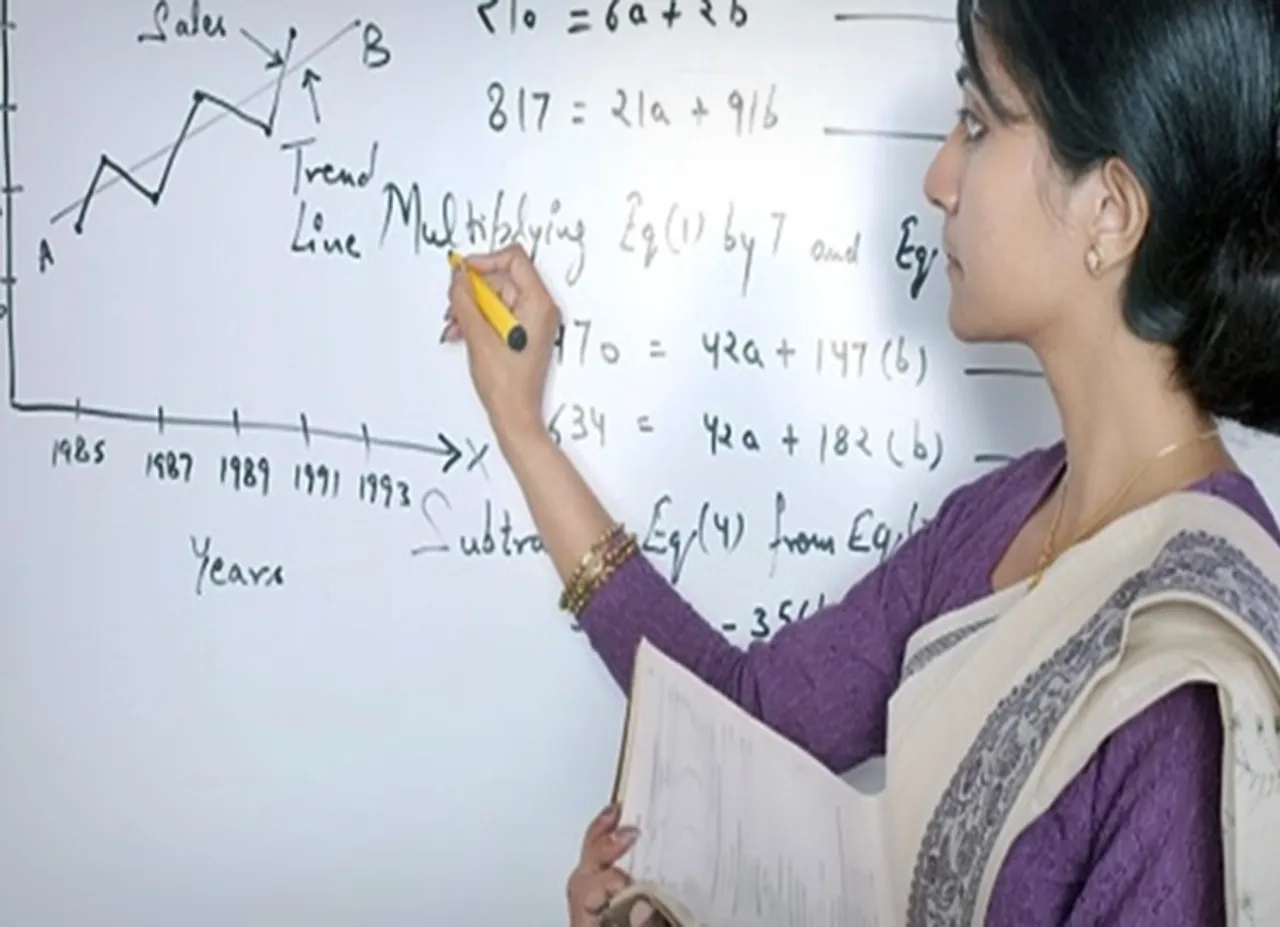 Sales
B
Trend
Line
A
1985 1987 1989 1991 1993 X
Years
210 = 6a + 2b
817 = 21a + 91b
Multiplying Eq(1) by 7 and Eq
70 = 42a + 147(b)
634 = 42a + 182(b)
Eq(4) from Eq
- 35(